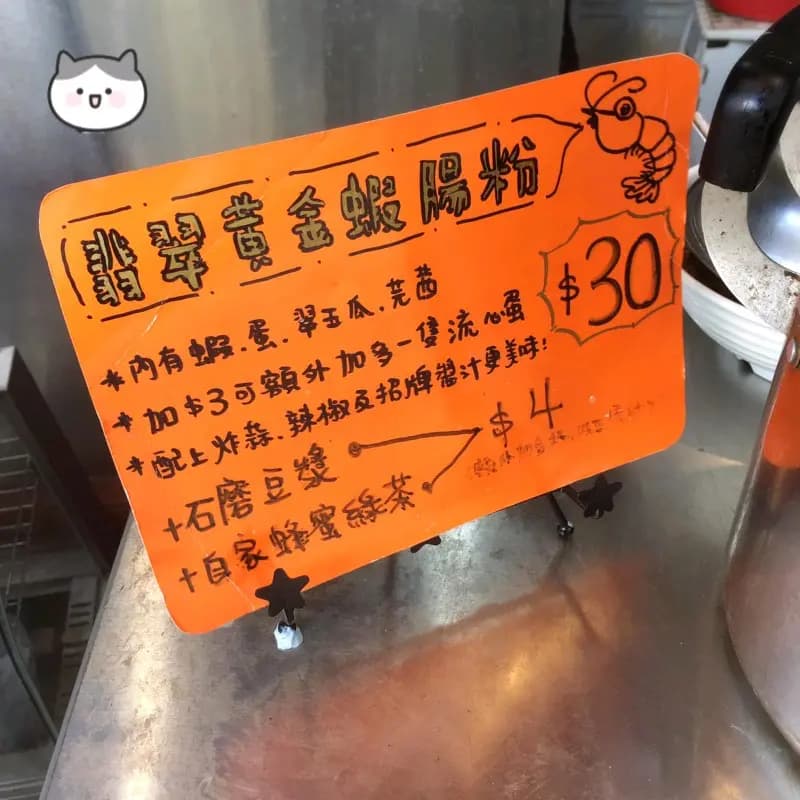 翡翠黃金蝦腸粉
$30
*內有蝦.蛋.翠玉瓜.芫茜
*加$3可額外加多一隻流心蛋
*配上炸蒜.辣椒及招牌醬汁更美味!
+石磨豆漿 $4
+自家蜂蜜綠茶